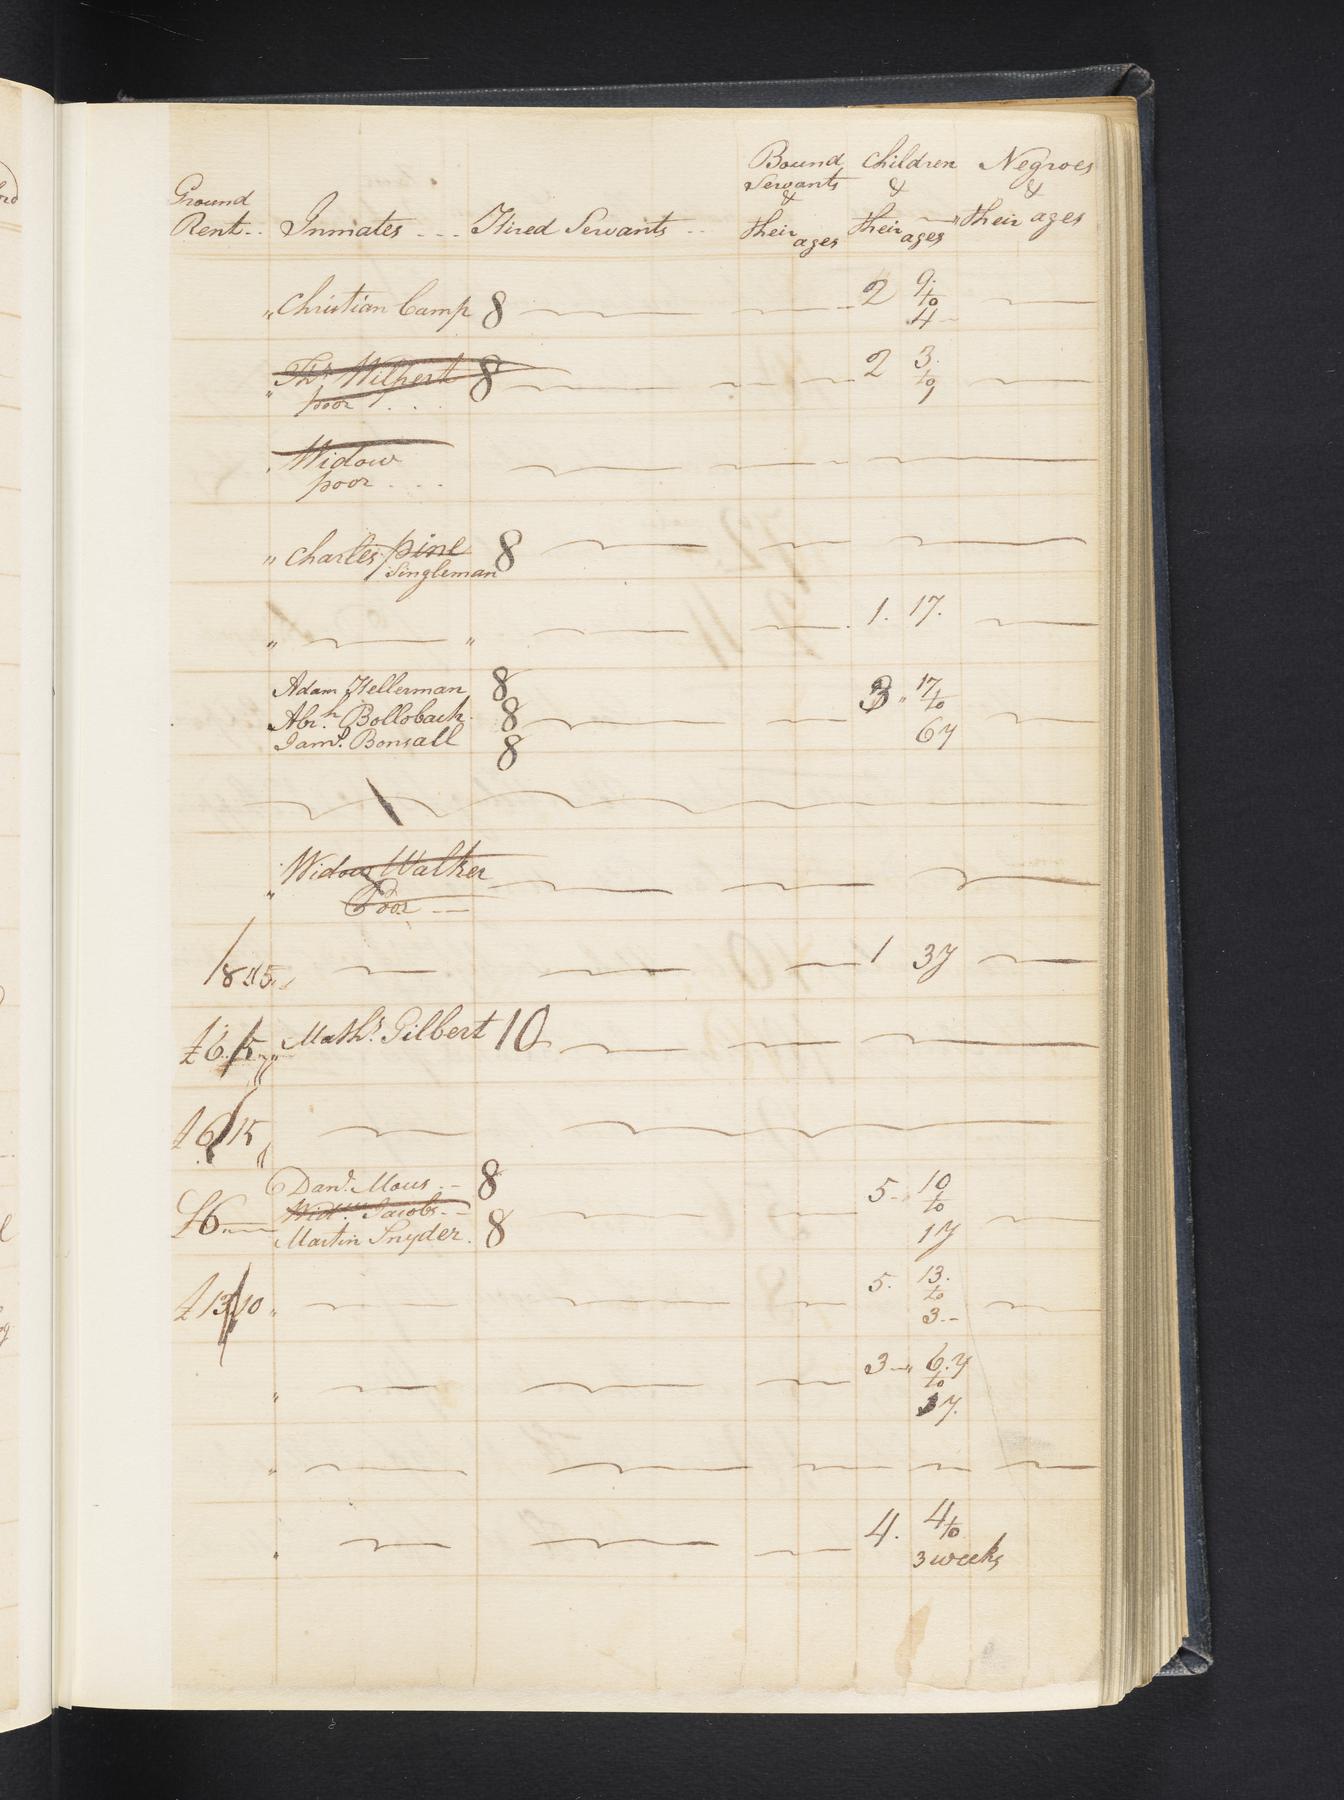 Ground Rent.. Inmates - - - Hired Servants .. Bound Servants & their ages Children & their ages Negroes & their ages
" Christian Camp 8 2 9. to 4
" Thos. Wilpert 8 2 3. to 9
poor . . .
Widow
poor . . .
" Charles pine 8
Singleman
" " 1. 17.
Adam Hellerman 8 3 " 17 to 6y
Abrh. Bollobach 8
Jams. Bonsall 8
" Widow Walker
Poor
18 " 15 " 1 3y
£6 " 15 " Maths. Gilbert 10
£6 " 15 "
Danl. Mous . - 8 5 - 10 to 1y
£6 Widw. Jacobs
Martin Snyder . 8
£13 " 10 " 5. 13. to 3 . -
" 3 - " 6.y to 1y.
"
4. 4 to 3 weeks